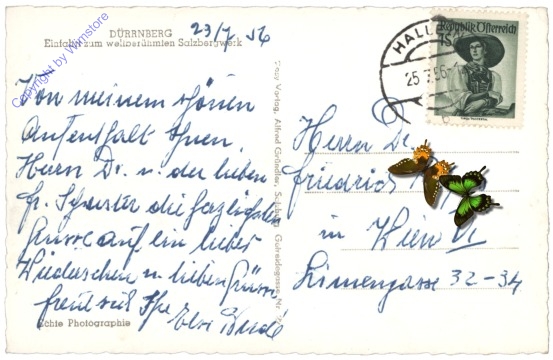 DÜRRNBERG
Einfahrt zum weltberühmten Salzbergwerk
23/7 56
Copyright by Wimstore
Von meinem schönen
Aufenthalt Ihnen,
Herrn Dr. u. der lieben
fr. die herzlichsten
Grüsse auf ein liebes
Wiedersehen u. lieben Grüssen
freut sich Ihre
Echte Photographie
Cosy Verlag, Alfred Gründler, Salzburg,
HALLEIN
25.7.56
Republik Österreich
Herrn Dr.
Friedrich
in Wien VI
Liniengasse 32-34